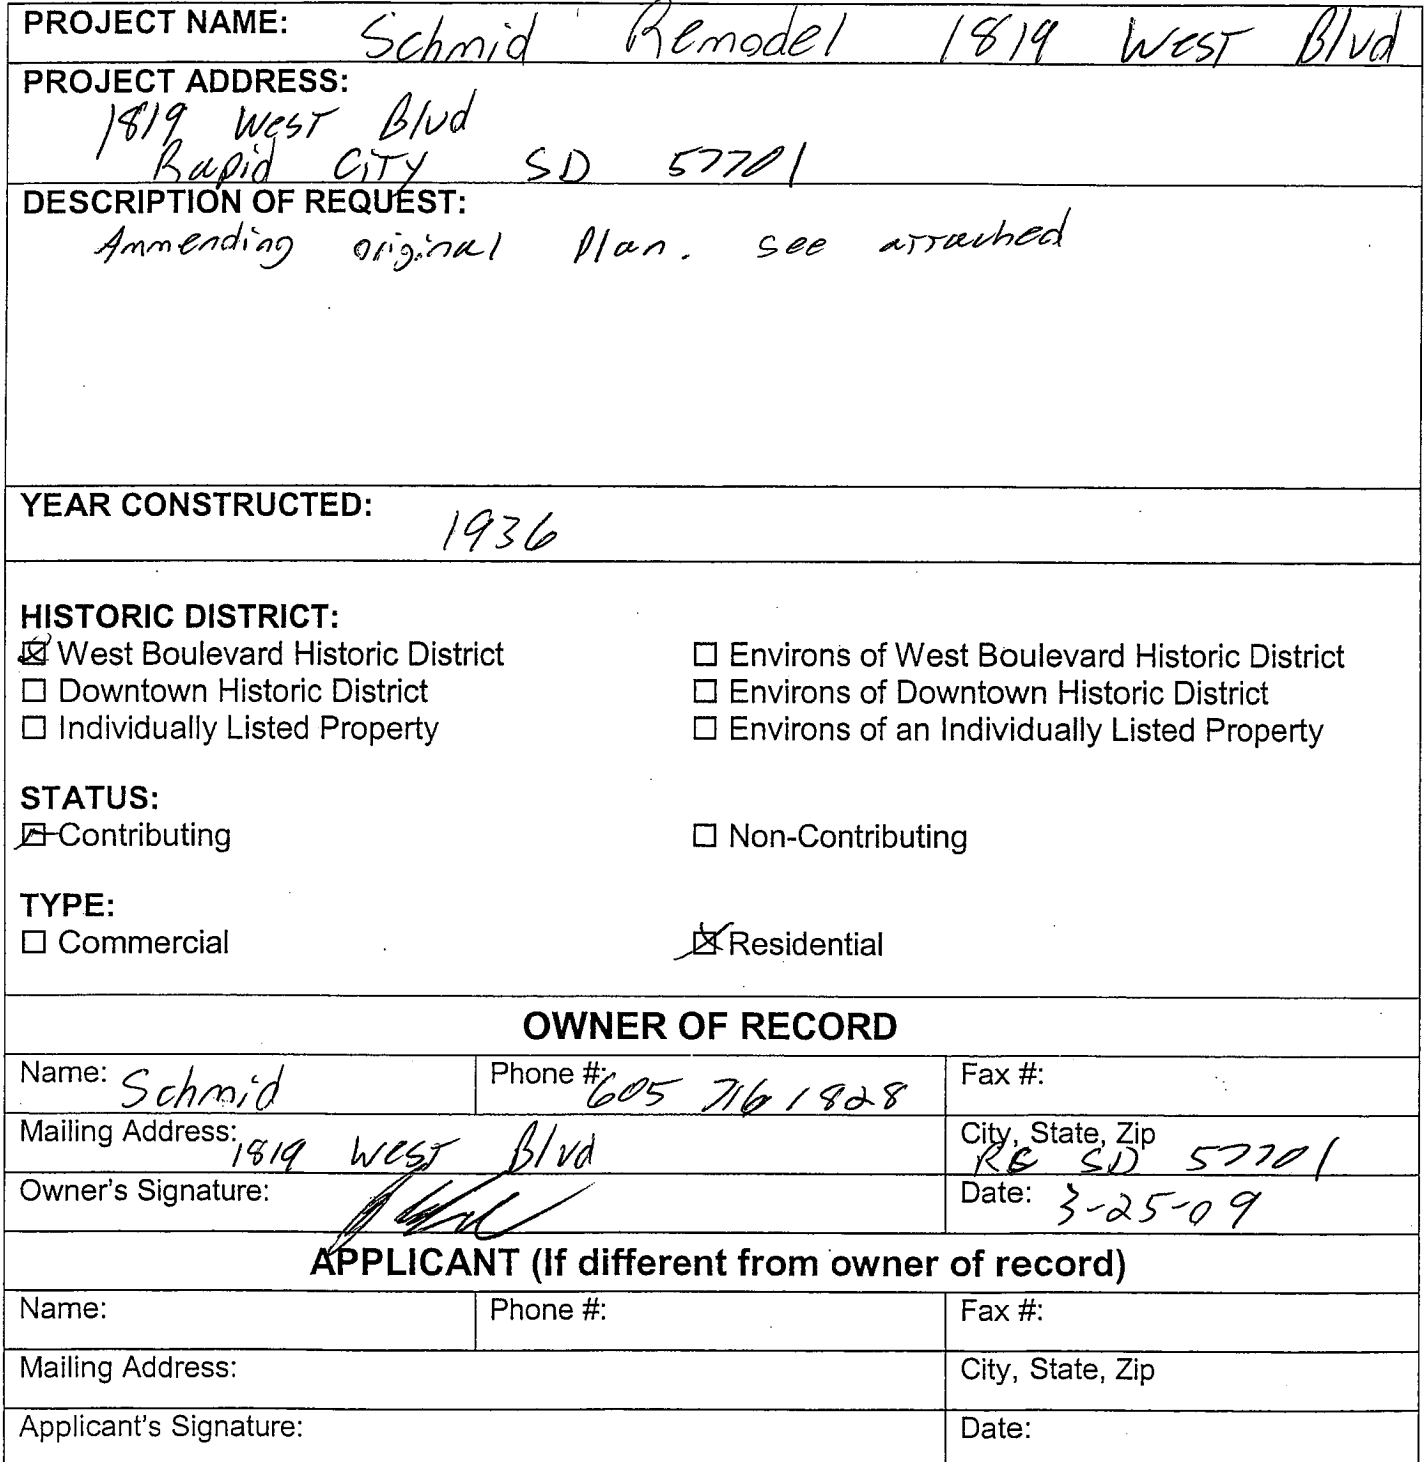 PROJECT NAME: Schmid Remodel 1819 West Blvd
PROJECT ADDRESS:
1819 West Blvd
Rapid City SD 57701
DESCRIPTION OF REQUEST:
Ammending original Plan. see attached
YEAR CONSTRUCTED: 1936
HISTORIC DISTRICT:
☒ West Boulevard Historic District ☐ Environs of West Boulevard Historic District
☐ Downtown Historic District ☐ Environs of Downtown Historic District
☐ Individually Listed Property ☐ Environs of an Individually Listed Property
STATUS:
☒ Contributing ☐ Non-Contributing
TYPE:
☐ Commercial ☒ Residential
OWNER OF RECORD
Name: Schmid Phone #: 605 716 1828 Fax #:
Mailing Address: 1819 West Blvd City, State, Zip RC SD 57701
Owner's Signature: Date: 3-25-09
APPLICANT (If different from owner of record)
Name: Phone #: Fax #:
Mailing Address: City, State, Zip
Applicant's Signature: Date: